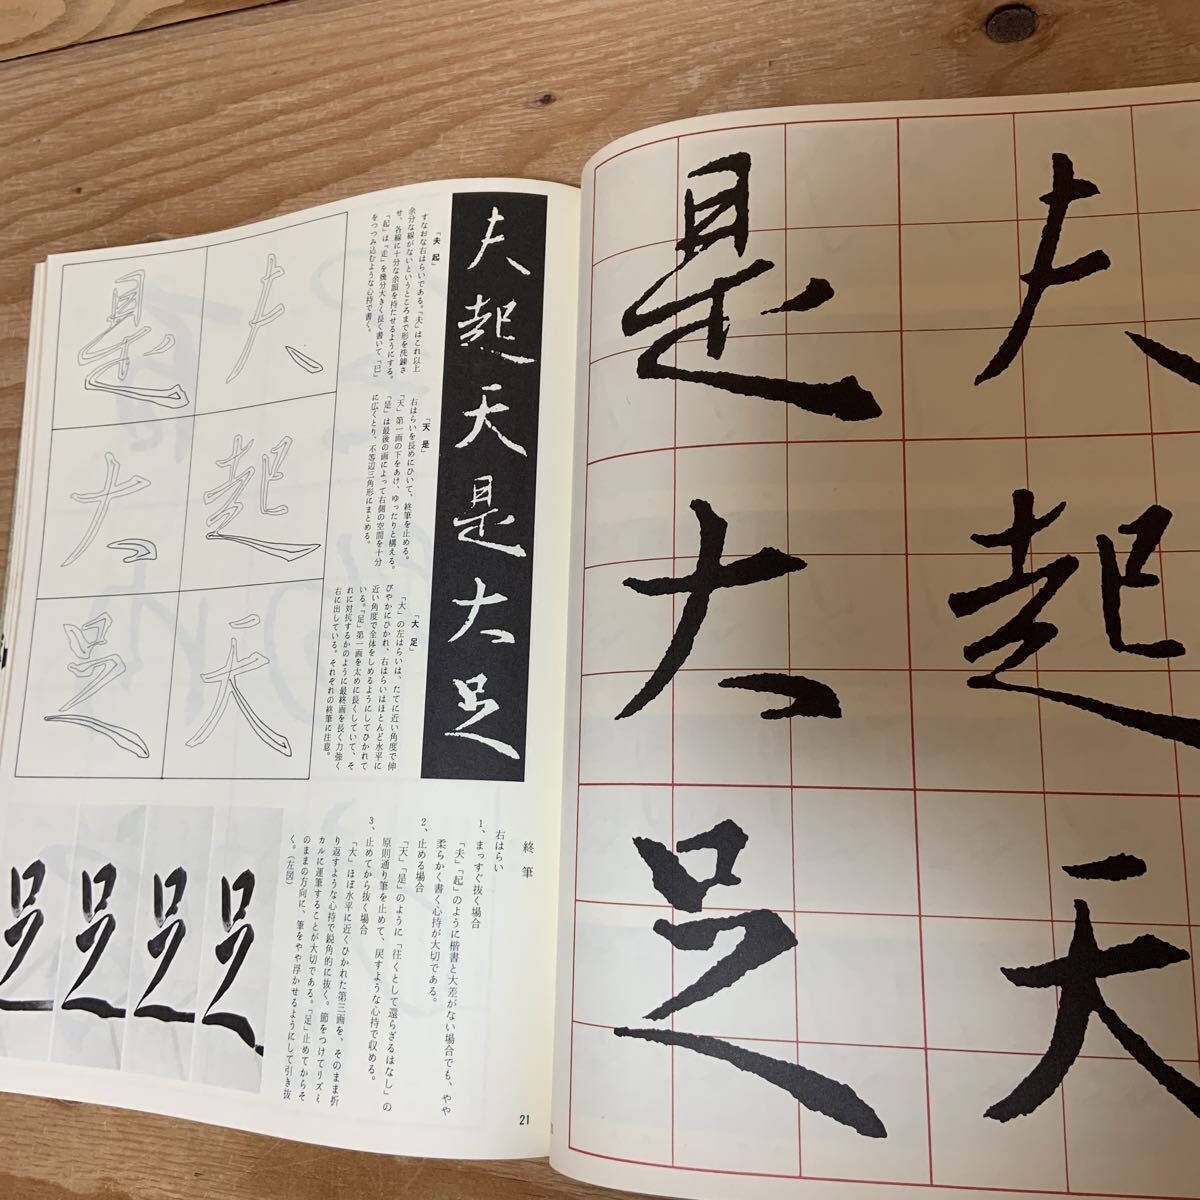 夫起天是大足
「夫 起」
すなおな右はらいである。「夫」はこれ以上
余分な線がないというところまで形を洗練さ
せ、各線に十分な余韻を持たせるようにする。
「起」は「走」を幾分大きく長く書いて「巳」
をつつみ込むような心持で書く。
「天 是」
右はらいを長めにひいて、終筆を止める。
「天」第一画の下をあけ、ゆったりと構える。
「是」は最後の画によって右側の空間を十分
に広くとり、不等辺三角形にまとめる。
「大 足」
「大」の左はらいは、たてに近い角度で伸
びやかにひかれ、右はらいはほとんど水平に
近い角度で全体をしめるようにしてひかれて
いる。「足」第一画を太めに長くしていて、そ
れに対抗するかのように最終画を長く力強く
右に出している。それぞれの終筆に注意。
夫起天
是大足
終筆
右はらい
1、まっすぐ抜く場合
「夫」「起」のように楷書と大差がない場合でも、やや
柔らかく書く心持が大切である。
2、止める場合
「天」「是」のように「往くとして還らざるはなし」の
原則通り筆を止めて、戻すような心持で収める。
3、止めてから抜く場合
「大」ほぼ水平に近くひかれた第三画を、そのまま折
り返すような心持で鋭角的に抜く。節をつけてリズミ
カルに運筆することが大切である。「足」止めてからそ
のままの方向に、筆をやや浮かせるようにして引き抜
く。（左図）
足
足
足
足
21
夫起天
是大足